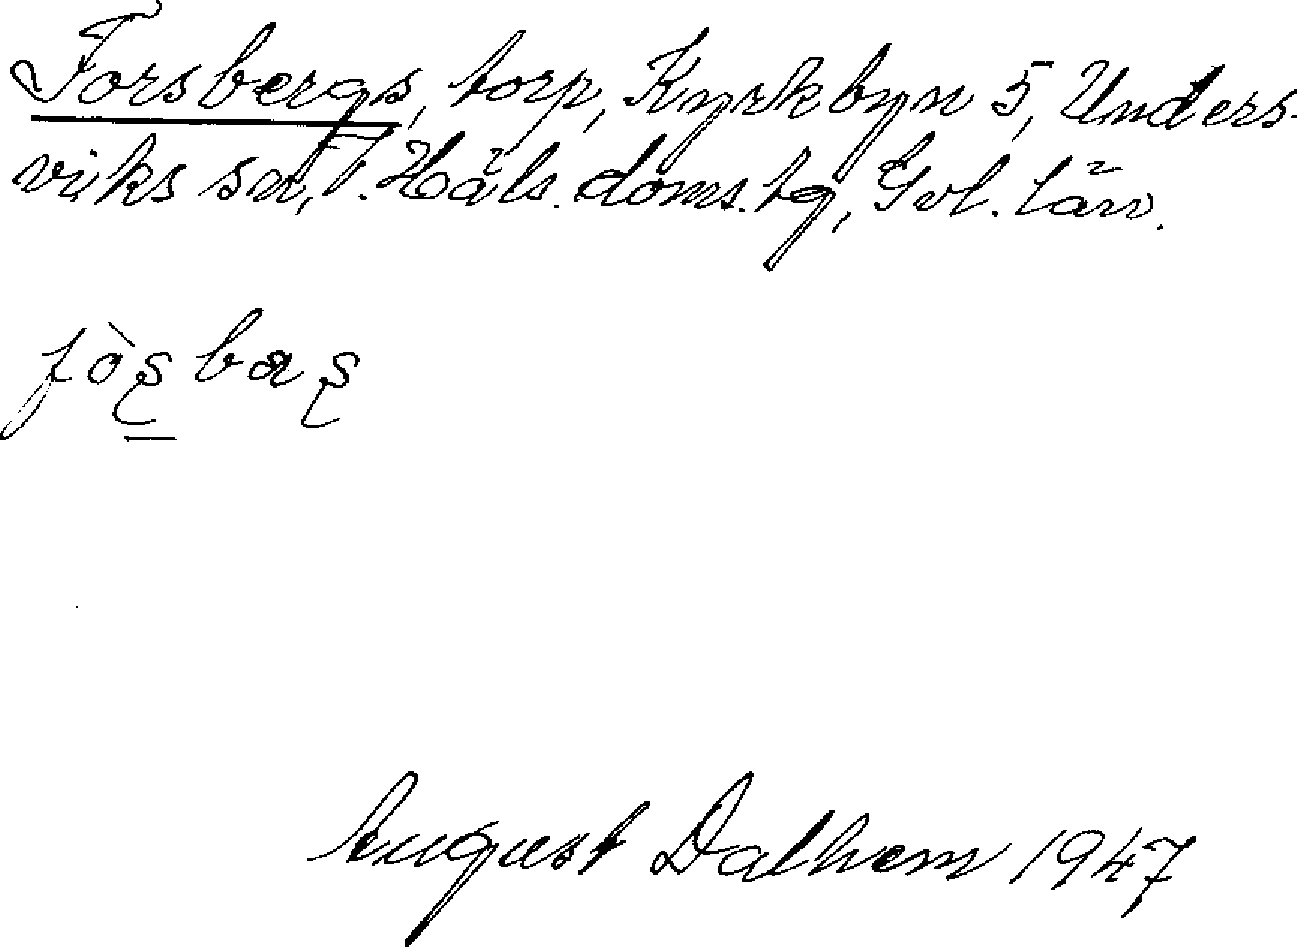 Forsbergs, torp, Kyrkbyn 5, Unders-
viks sn, V. Häls. doms. tg, Gvl. län.
fòʂbaʂ
August Dalhem 1947